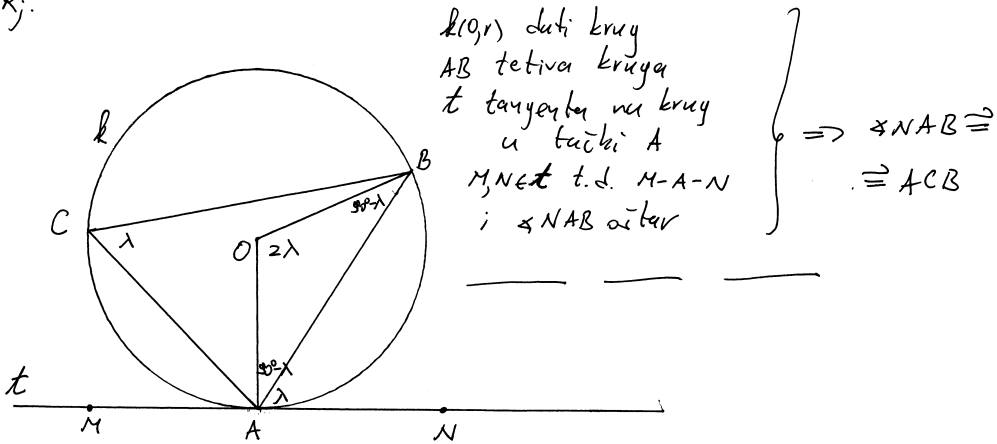 Rj:
k(O,r) dati krug
AB tetiva kruga
t tangenta na krug
u tački A
M,N∈t t.d. M-A-N
i ∢NAB oštar
=> ∢NAB ≅
≅ ACB
k
B
C
90°-λ
λ
O
2λ
90°-λ
λ
t
M
A
N